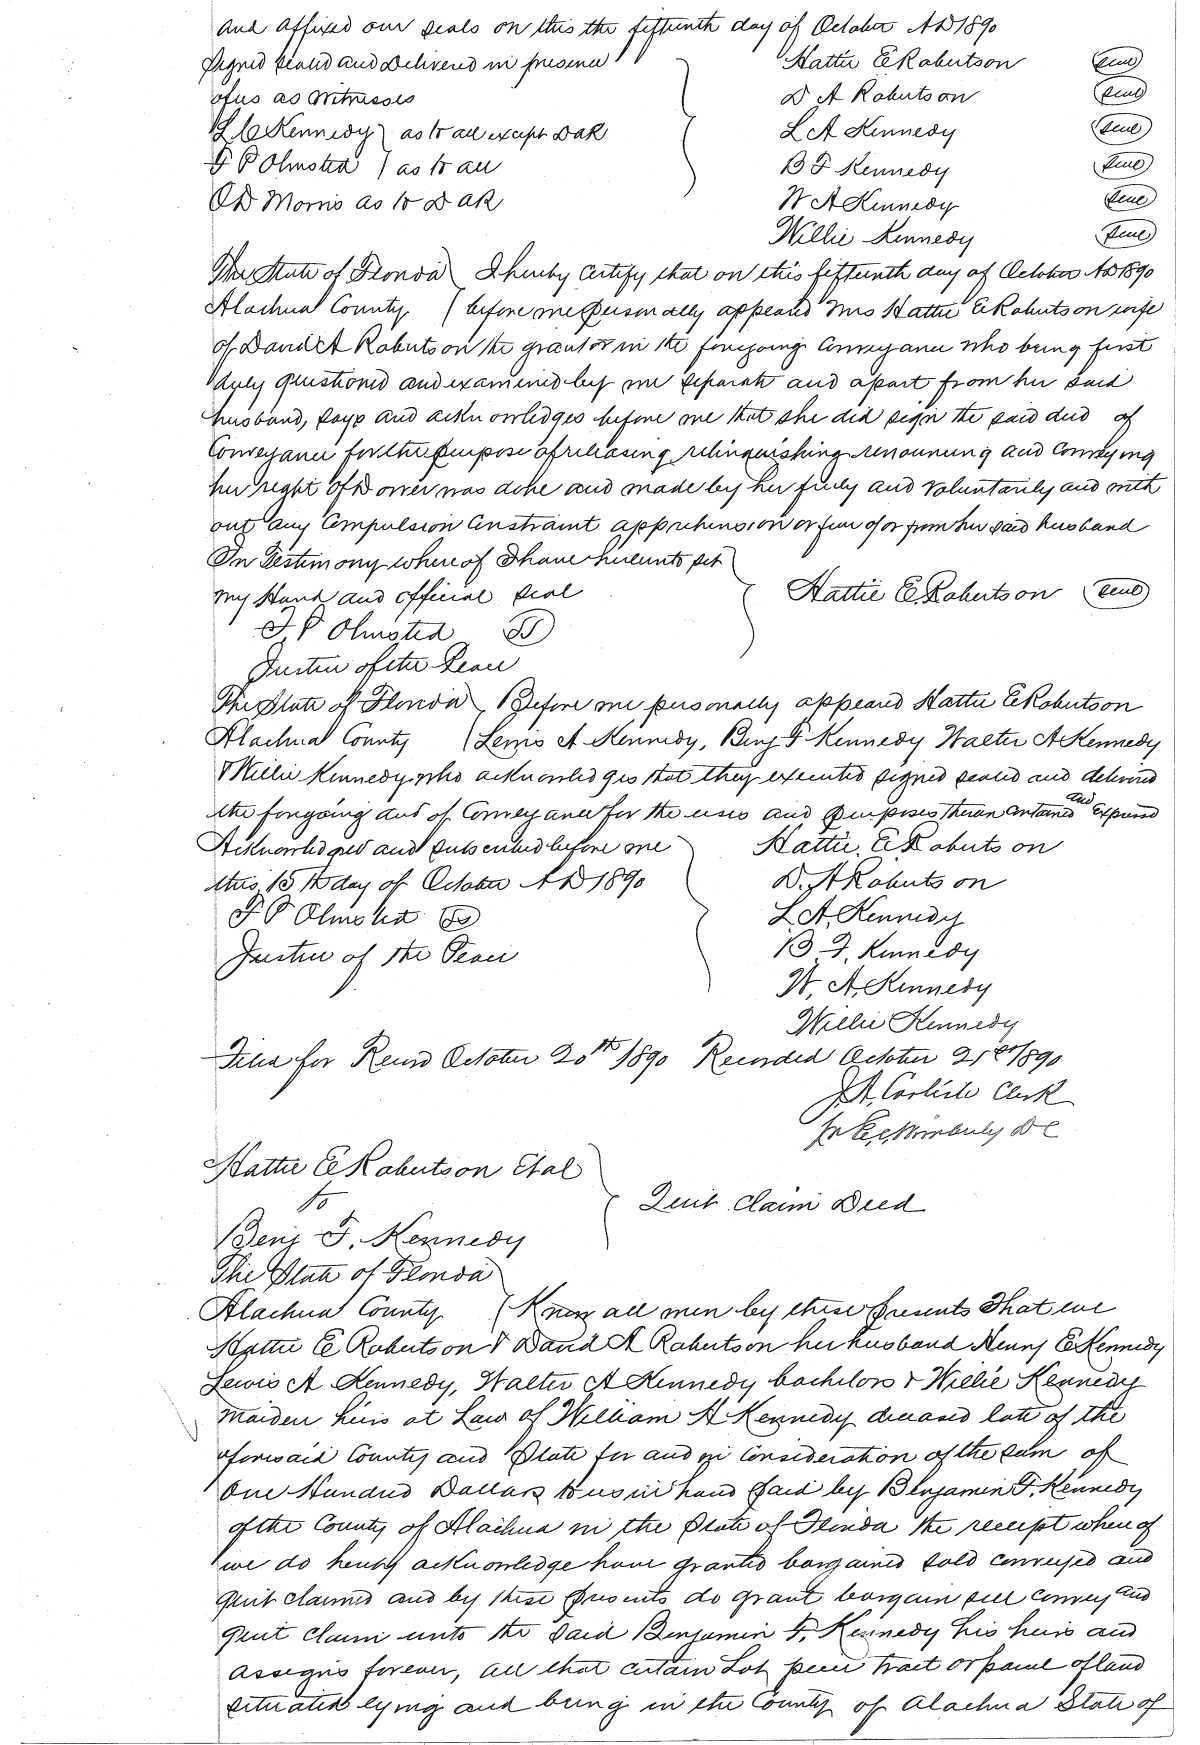 and affixed our seals on this the fifteenth day of October AD 1890
Signed sealed and Delivered in presence Hattie E Robertson seal
of us as Witnesses D A Robertson seal
L C Kennedy as to all except DAR L A Kennedy seal
F P Olmsted as to all B F Kennedy seal
O D Morris as to DAR W A Kennedy seal
Willie Kennedy seal
The State of Florida I hereby Certify that on this fifteenth day of October AD 1890
Alachua County before me personally appeared Mrs Hattie E Robertson wife
of David A Robertson the grantor in the foregoing Conveyance who being first
duly questioned and examined by me separate and apart from her said
husband, says and acknowledges before me that she did sign the said deed of
Conveyance for the purpose of releasing relinquishing renouncing and Conveying
her right of Dower was done and made by her freely and voluntarily and with
out any Compulsion Constraint apprehension or fear of or from her said husband
In Testimony where of I have hereunto set
my Hand and official seal Hattie E. Robertson seal
F. P Olmsted
Justice of the Peace
The State of Florida Before me personally appeared Hattie E Robertson
Alachua County Lewis A Kennedy, Benj F Kennedy Walter A Kennedy
& Willie Kennedy who acknowledges that they executed signed sealed and delivered
the foregoing deed of Conveyance for the uses and purposes therein contained and Expressed
Acknowledged and subscribed before me Hattie. E Robertson
this 15th day of October AD 1890 D. A Robertson
F P Olmsted L. A. Kennedy
Justice of the Peace B. F. Kennedy
W. A. Kennedy
Willie Kennedy
Filed for Record October 20th 1890 Recorded October 21st 1890
J. A. Carlisle Clerk
Wimberly DC
Hattie E Robertson Et al
to Quit Claim Deed
Benj F. Kennedy
The State of Florida
Alachua County Know all men by these presents That we
Hattie E Robertson & David A Robertson her husband Henry E Kennedy
Lewis A Kennedy, Walter A Kennedy bachelors & Willie Kennedy
maiden heirs at Law of William A Kennedy deceased late of the
aforesaid County and State for and in Consideration of the sum of
One Hundred Dollars to us in hand paid by Benjamin F. Kennedy
of the County of Alachua in the State of Florida the receipt where of
we do hereby acknowledge have granted bargained sold conveyed and
quit claimed and by these presents do grant bargain sell convey and
quit claim unto the said Benjamin F. Kennedy his heirs and
assigns forever, all that certain Lot piece tract or parcel of land
situated lying and being in the County of Alachua State of